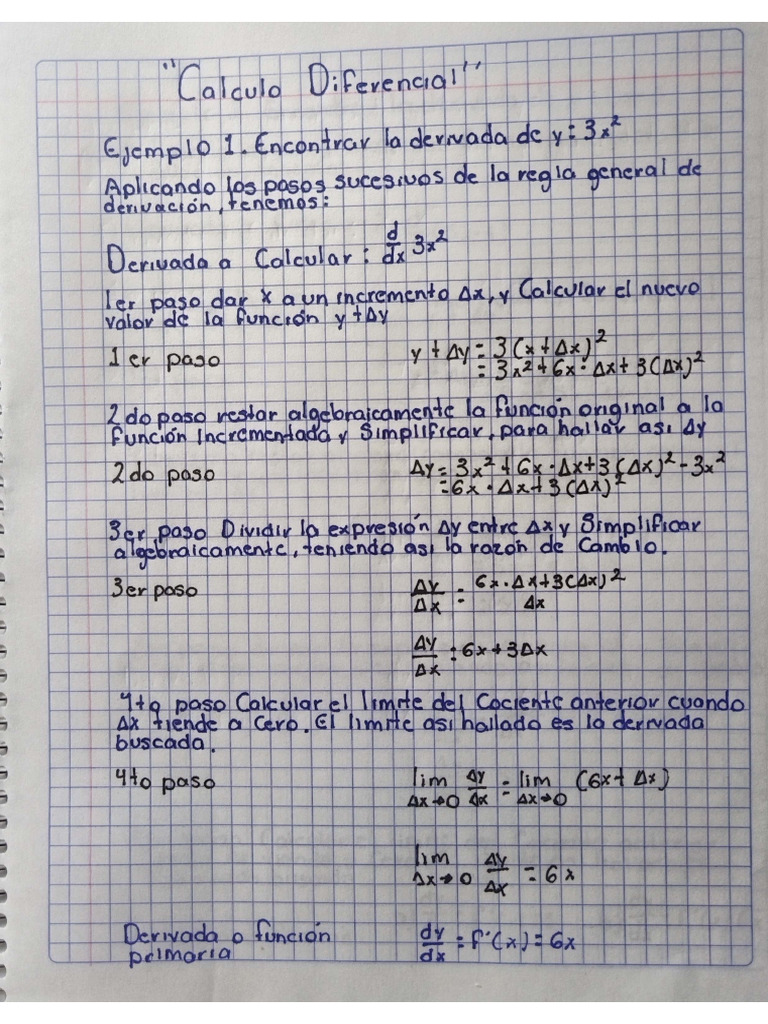 "Calculo Diferencial"
Ejemplo 1. Encontrar la derivada de y = 3x²
Aplicando los pasos sucesivos de la regla general de
derivación, tenemos:
Derivada a Calcular: d/dx 3x²
1er paso dar x a un incremento Δx, y Calcular el nuevo
valor de la función y+Δy
1er paso y + Δy = 3(x+Δx)²
= 3x²+6x·Δx+3(Δx)²
2do paso restar algebraicamente la función original a la
función incrementada y Simplificar, para hallar asi Δy
2do paso Δy = 3x²+6x·Δx+3(Δx)²-3x²
=6x·Δx+3(Δx)²
3er paso Dividir la expresión Δy entre Δx y Simplificar
algebraicamente, teniendo asi la razón de Cambio.
3er paso Δy/Δx = 6x·Δx+3(Δx)²/Δx
Δy/Δx = 6x+3Δx
4to paso Calcular el limite del Cociente anterior cuando
Δx tiende a Cero. El limite asi hallado es la derivada
buscada.
4to paso lim Δx→0 Δy/Δx = lim Δx→0 (6x+Δx)
lim Δx→0 Δy/Δx = 6x
Derivada o función dy/dx = f'(x) = 6x
primaria